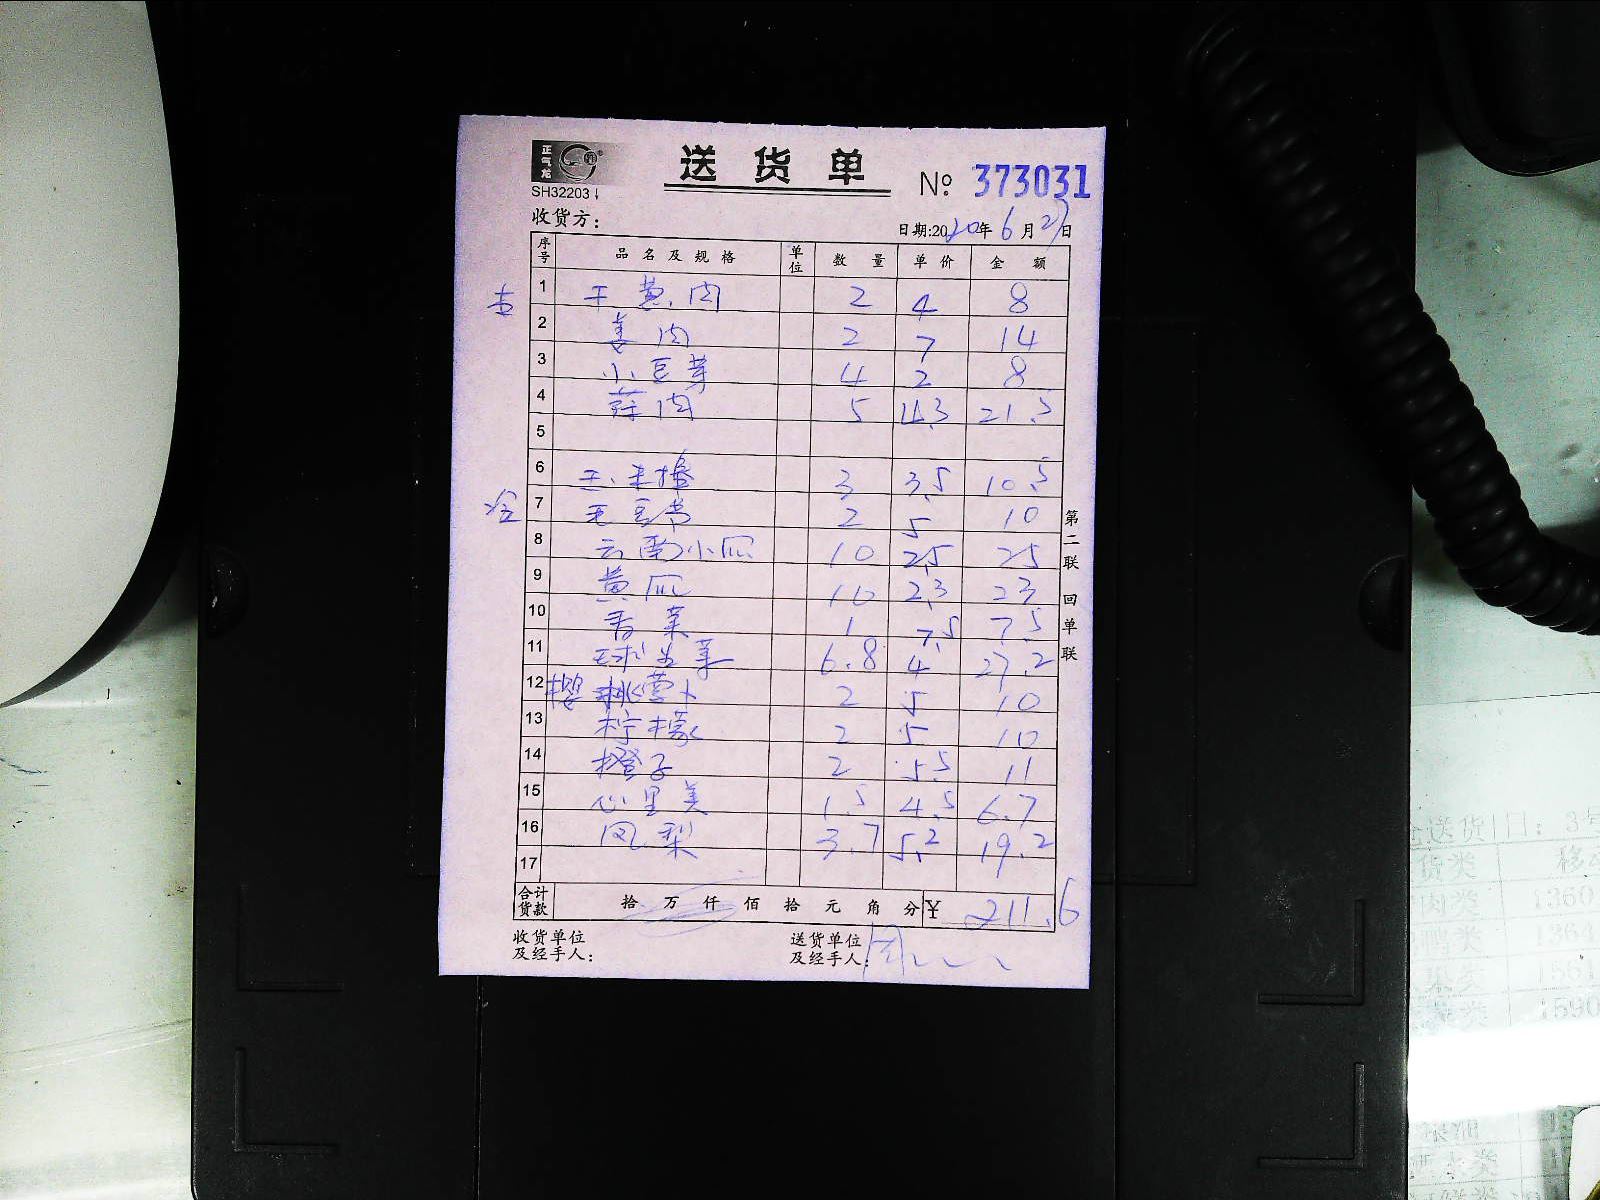 正气龙
送货单
№ 373031
SH32203↓
收货方:
日期:2020年6月27日
序号 品名及规格 单位 数量 单价 金额
1 干黄肉 2 4 8
2 姜肉 2 7 14
3 小豆芽 4 2 8
4 蒜肉 5 4.3 21.5
5
6 玉米棒 3 3.5 10.5
7 毛豆节 2 5 10
8 云南小瓜 10 2.5 25
9 黄瓜 10 2.3 23
10 香菜 1 7.5 7.5
11 球生菜 6.8 4 27.2
12 樱桃萝卜 2 5 10
13 柠檬 2 5 10
14 橙子 2 5.5 11
15 心里美 1.5 4.5 6.7
16 凤梨 3.7 5.2 19.2
17
合计货款 拾 万 仟 佰 拾 元 角 分 ¥ 211.6
收货单位及经手人:
送货单位及经手人:
第二联 回单联
送货 日: 3号
货类
肉类 1360
鸭类 1364
果类 1561
类 1590